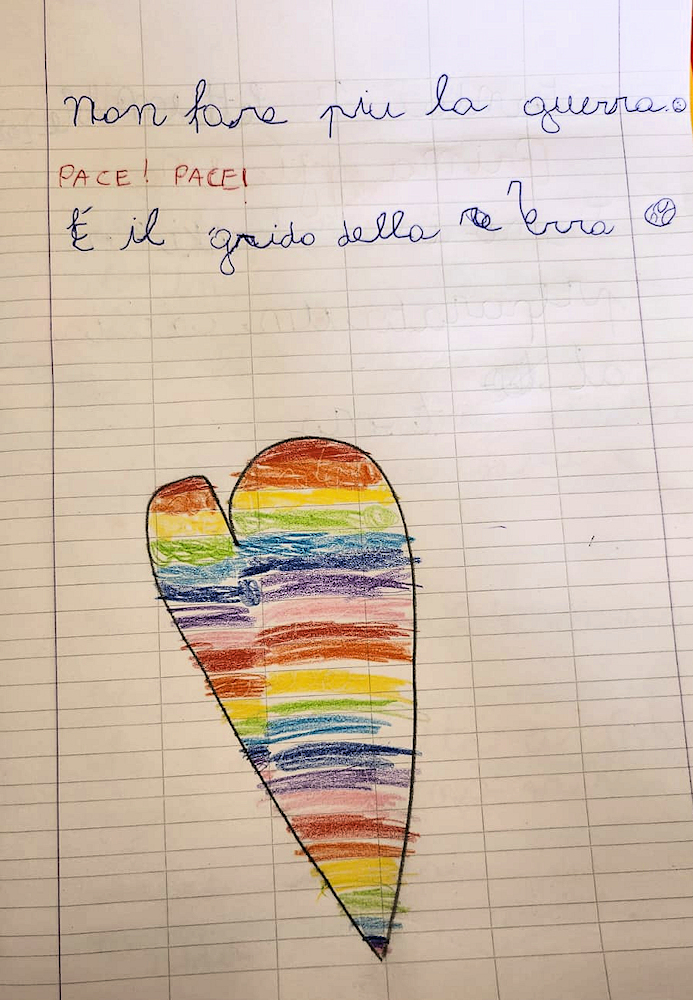 Non fare piu la guerra.
PACE! PACE!
É il grido della Terra